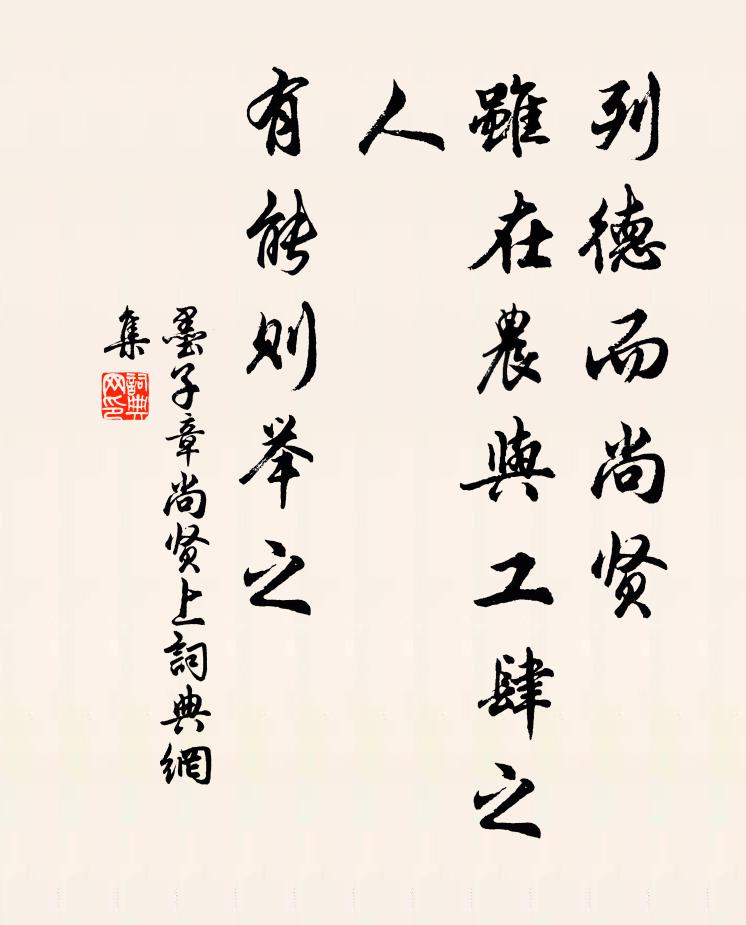 列德而尚贤
雖在農與工肆之
人
有能则举之
墨子章尚贤上詞典網
集
詞典
网印